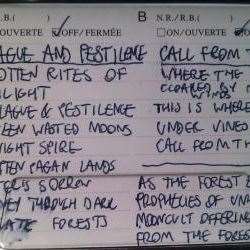 R.B.( )
B N.R./R.B.( )
OUVERTE ☑OFF/FERMÉE
□ON/OUVERTE
AGUE AND PESTILENCE
OTTEN RITES OF
LIGHT
LAGUE & PESTILENCE
EEN WASTED MOONS
IGHT SPIRE
TEN PAGAN LANDS
SORROW
THROUGH DARK
FORESTS
CALL FROM T
WHERE THE
CLOAKED BY
THIS IS WHERE
UNDER VINED
CALL FROM TH
AS THE FOREST
PROPHECIES OF UN
MOONCULT OFFERIN
FROM THE FORES